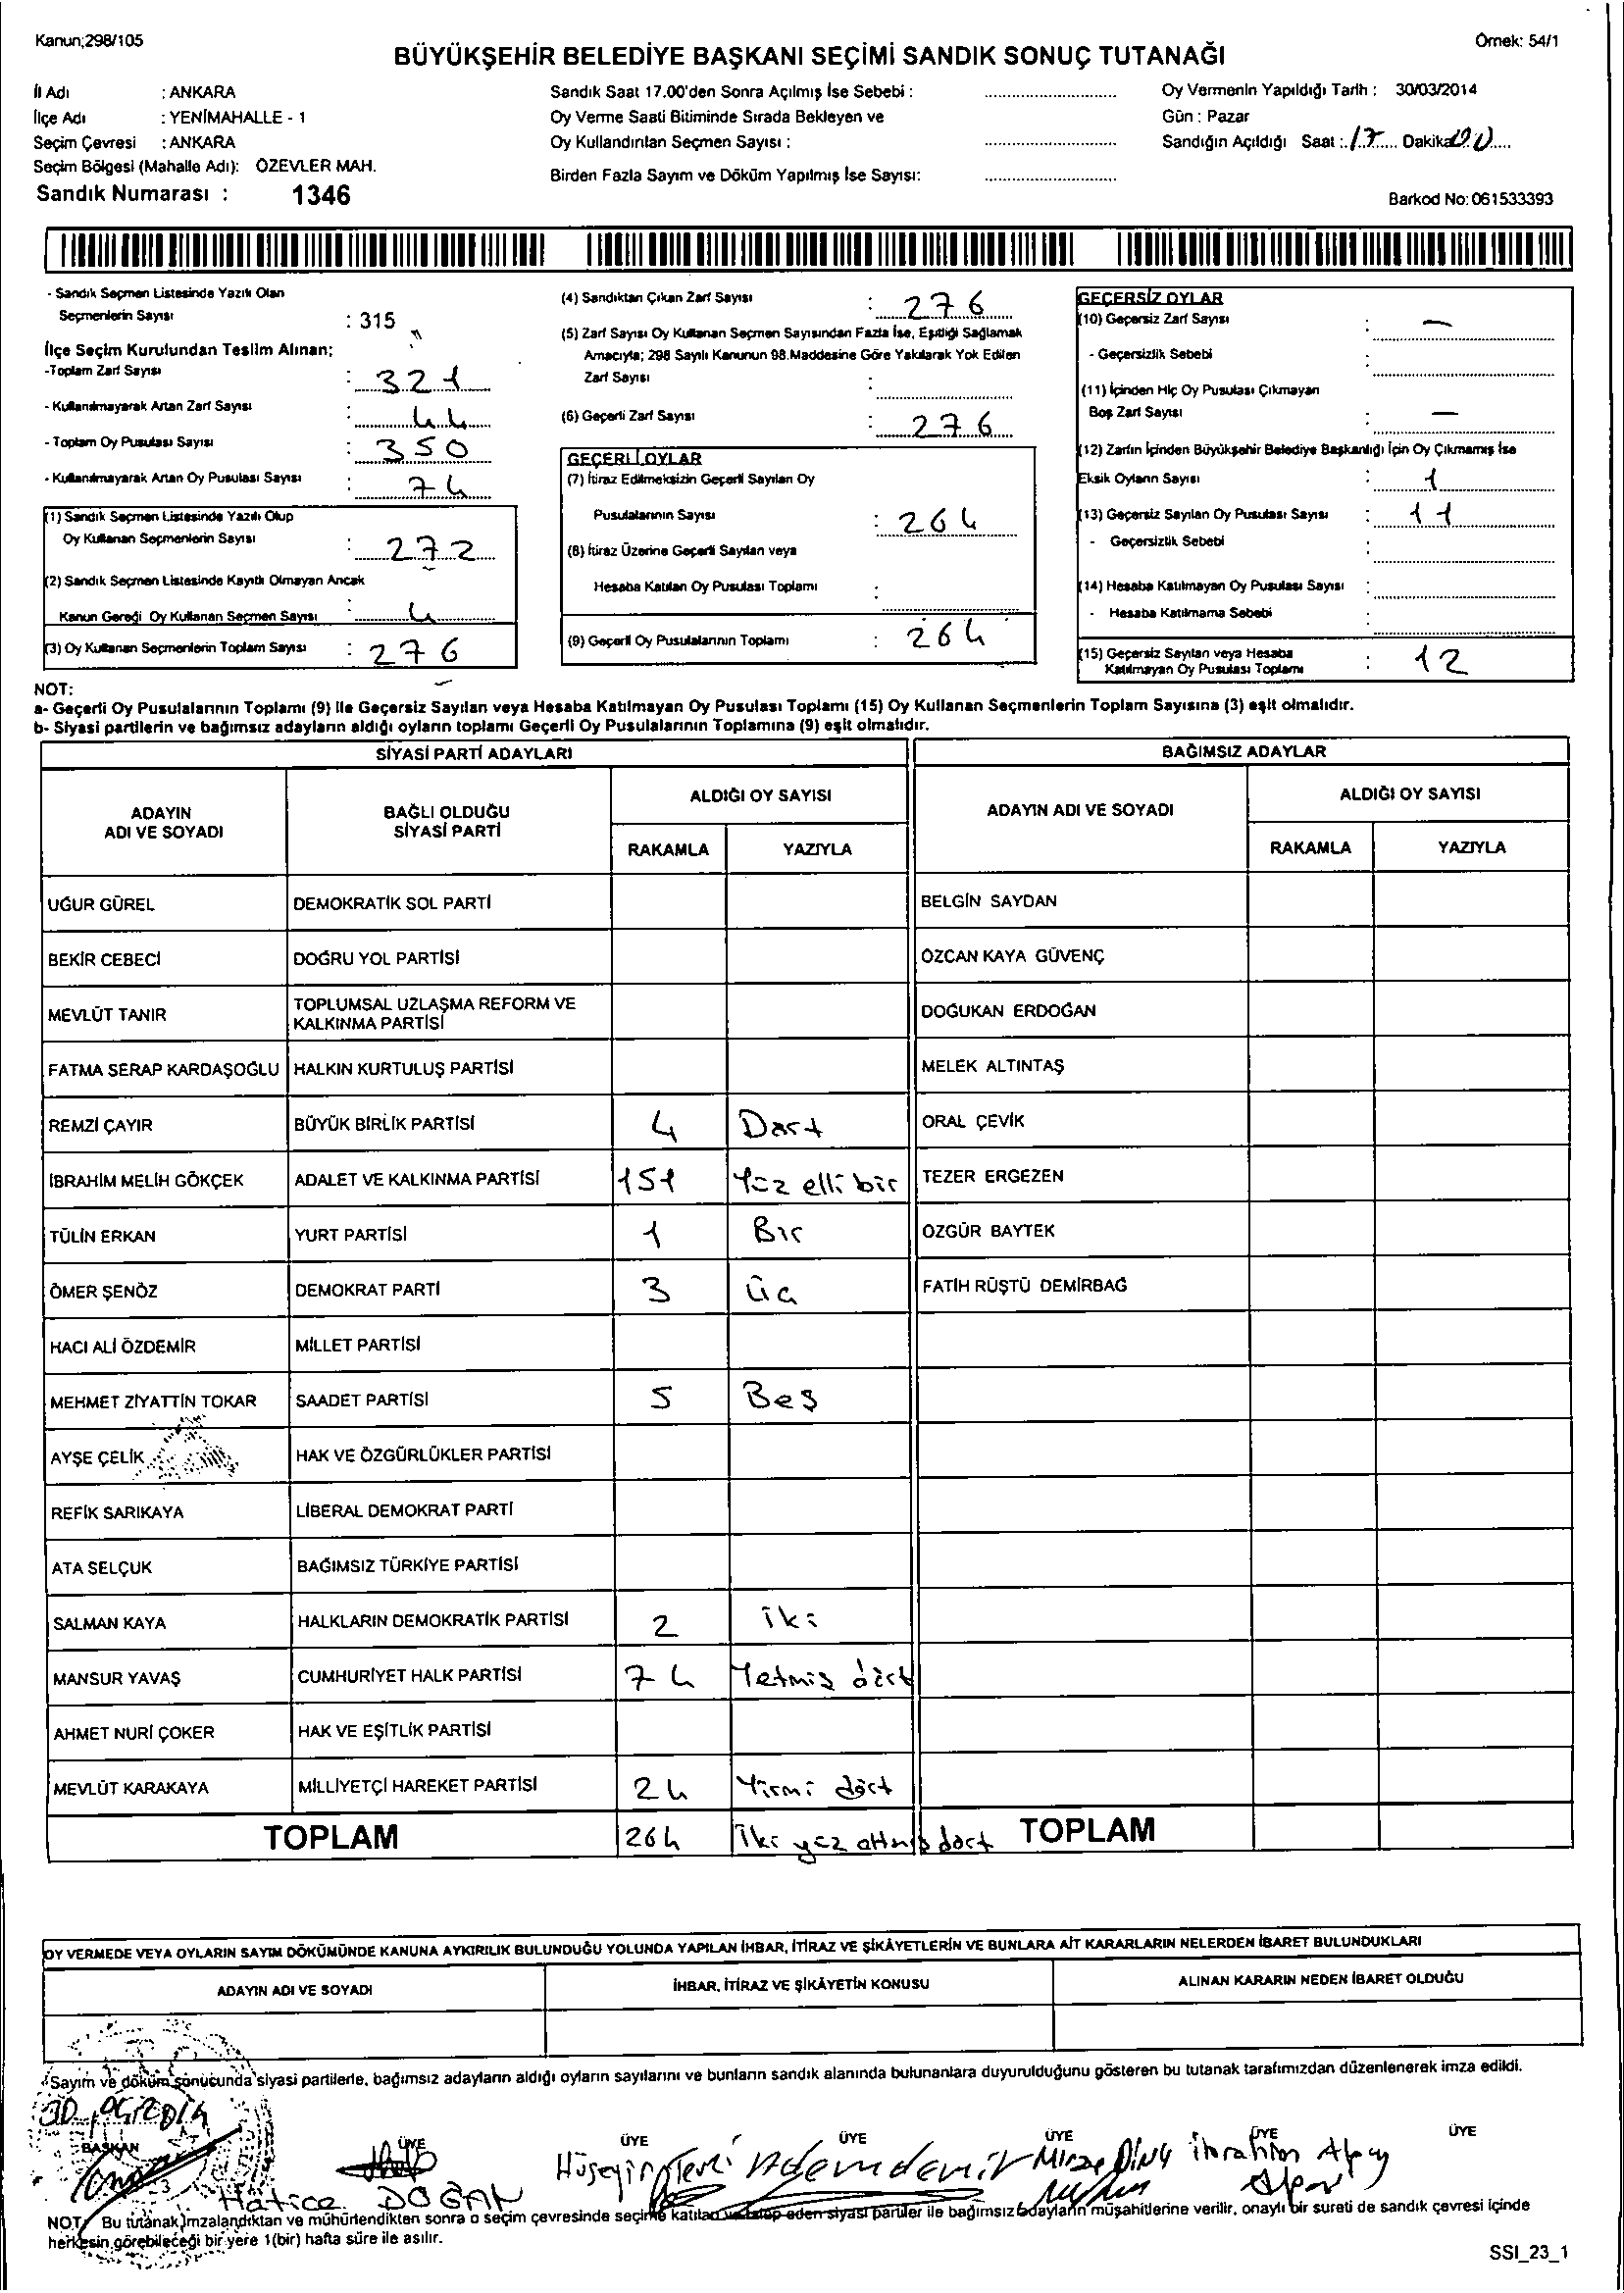 Kanun;298/105
Örnek: 54/1
BÜYÜKŞEHİR BELEDİYE BAŞKANI SEÇİMİ SANDIK SONUÇ TUTANAĞI
İl Adı : ANKARA
İlçe Adı : YENİMAHALLE - 1
Seçim Çevresi : ANKARA
Seçim Bölgesi (Mahalle Adı): ÖZEVLER MAH.
Sandık Numarası : 1346
Sandık Saat 17.00'den Sonra Açılmış İse Sebebi :
Oy Verme Saati Bitiminde Sırada Bekleyen ve
Oy Kullandırılan Seçmen Sayısı :
Birden Fazla Sayım ve Döküm Yapılmış İse Sayısı:
Oy Vermenin Yapıldığı Tarih : 30/03/2014
Gün : Pazar
Sandığın Açıldığı Saat : 17 Dakika 00
Barkod No: 061533393
- Sandık Seçmen Listesinde Yazılı Olan
Seçmenlerin Sayısı : 315
İlçe Seçim Kurulundan Teslim Alınan;
-Toplam Zarf Sayısı : 321
- Kullanılmayarak Artan Zarf Sayısı : 44
- Toplam Oy Pusulası Sayısı : 350
- Kullanılmayarak Artan Oy Pusulası Sayısı : 74
(1) Sandık Seçmen Listesinde Yazılı Olup
Oy Kullanan Seçmenlerin Sayısı : 272
(2) Sandık Seçmen Listesinde Kayıtlı Olmayan Ancak
Kanun Gereği Oy Kullanan Seçmen Sayısı : 4
(3) Oy Kullanan Seçmenlerin Toplam Sayısı : 276
(4) Sandıktan Çıkan Zarf Sayısı : 276
(5) Zarf Sayısı Oy Kullanan Seçmen Sayısından Fazla İse, Eşitliği Sağlamak
Amacıyla; 298 Sayılı Kanunun 98.Maddesine Göre Yakılarak Yok Edilen
Zarf Sayısı :
(6) Geçerli Zarf Sayısı : 276
GEÇERLİ OYLAR
(7) İtiraz Edilmeksizin Geçerli Sayılan Oy
Pusulalarının Sayısı : 264
(8) İtiraz Üzerine Geçerli Sayılan veya
Hesaba Katılan Oy Pusulası Toplamı :
(9) Geçerli Oy Pusulalarının Toplamı : 264
GEÇERSİZ OYLAR
(10) Geçersiz Zarf Sayısı : —
- Geçersizlik Sebebi :
(11) İçinden Hiç Oy Pusulası Çıkmayan
Boş Zarf Sayısı : —
(12) Zarfın İçinden Büyükşehir Belediye Başkanlığı İçin Oy Çıkmamış İse
Eksik Oyların Sayısı : 1
(13) Geçersiz Sayılan Oy Pusulası Sayısı : 11
- Geçersizlik Sebebi :
(14) Hesaba Katılmayan Oy Pusulası Sayısı :
- Hesaba Katılmama Sebebi :
(15) Geçersiz Sayılan veya Hesaba
Katılmayan Oy Pusulası Toplamı : 12
NOT:
a- Geçerli Oy Pusulalarının Toplamı (9) ile Geçersiz Sayılan veya Hesaba Katılmayan Oy Pusulası Toplamı (15) Oy Kullanan Seçmenlerin Toplam Sayısına (3) eşit olmalıdır.
b- Siyasi partilerin ve bağımsız adayların aldığı oyların toplamı Geçerli Oy Pusulalarının Toplamına (9) eşit olmalıdır.
SİYASİ PARTİ ADAYLARI BAĞIMSIZ ADAYLAR
ADAYIN
ADI VE SOYADI
BAĞLI OLDUĞU
SİYASİ PARTİ
ALDIĞI OY SAYISI
RAKAMLA YAZIYLA
ADAYIN ADI VE SOYADI
ALDIĞI OY SAYISI
RAKAMLA YAZIYLA
UĞUR GÜREL DEMOKRATİK SOL PARTİ BELGİN SAYDAN
BEKİR CEBECİ DOĞRU YOL PARTİSİ ÖZCAN KAYA GÜVENÇ
MEVLÜT TANIR TOPLUMSAL UZLAŞMA REFORM VE
KALKINMA PARTİSİ DOĞUKAN ERDOĞAN
FATMA SERAP KARDAŞOĞLU HALKIN KURTULUŞ PARTİSİ MELEK ALTINTAŞ
REMZİ ÇAYIR BÜYÜK BİRLİK PARTİSİ 4 Dört ORAL ÇEVİK
İBRAHİM MELİH GÖKÇEK ADALET VE KALKINMA PARTİSİ 151 Yüz elli bir TEZER ERGEZEN
TÜLİN ERKAN YURT PARTİSİ 1 Bir ÖZGÜR BAYTEK
ÖMER ŞENÖZ DEMOKRAT PARTİ 3 Üç FATİH RÜŞTÜ DEMİRBAĞ
HACI ALİ ÖZDEMİR MİLLET PARTİSİ
MEHMET ZİYATTİN TOKAR SAADET PARTİSİ 5 Beş
AYŞE ÇELİK HAK VE ÖZGÜRLÜKLER PARTİSİ
REFİK SARIKAYA LİBERAL DEMOKRAT PARTİ
ATA SELÇUK BAĞIMSIZ TÜRKİYE PARTİSİ
SALMAN KAYA HALKLARIN DEMOKRATİK PARTİSİ 2 İki
MANSUR YAVAŞ CUMHURİYET HALK PARTİSİ 74 Yetmiş dört
AHMET NURİ ÇOKER HAK VE EŞİTLİK PARTİSİ
MEVLÜT KARAKAYA MİLLİYETÇİ HAREKET PARTİSİ 24 Yirmi dört
TOPLAM 264 İki yüz altmış dört TOPLAM
OY VERMEDE VEYA OYLARIN SAYIM DÖKÜMÜNDE KANUNA AYKIRILIK BULUNDUĞU YOLUNDA YAPILAN İHBAR, İTİRAZ VE ŞİKÂYETLERİN VE BUNLARA AİT KARARLARIN NELERDEN İBARET BULUNDUKLARI
ADAYIN ADI VE SOYADI İHBAR, İTİRAZ VE ŞİKÂYETİN KONUSU ALINAN KARARIN NEDEN İBARET OLDUĞU
Sayım ve döküm sonucunda siyasi partilerle, bağımsız adayların aldığı oyların sayılarını ve bunların sandık alanında bulunanlara duyurulduğunu gösteren bu tutanak tarafımızdan düzenlenerek imza edildi.
BAŞKAN ÜYE ÜYE ÜYE ÜYE ÜYE ÜYE
Hatice DOĞAN Hüseyin Adem demir İbrahim
NOT: Bu tutanak imzalandıktan ve mühürlendikten sonra o seçim çevresinde seçime katılan ve talep eden siyasi partiler ile bağımsız adayların müşahitlerine verilir, onaylı bir sureti de sandık çevresi içinde
herkesin görebileceği bir yere 1(bir) hafta süre ile asılır.
SSI_23_1